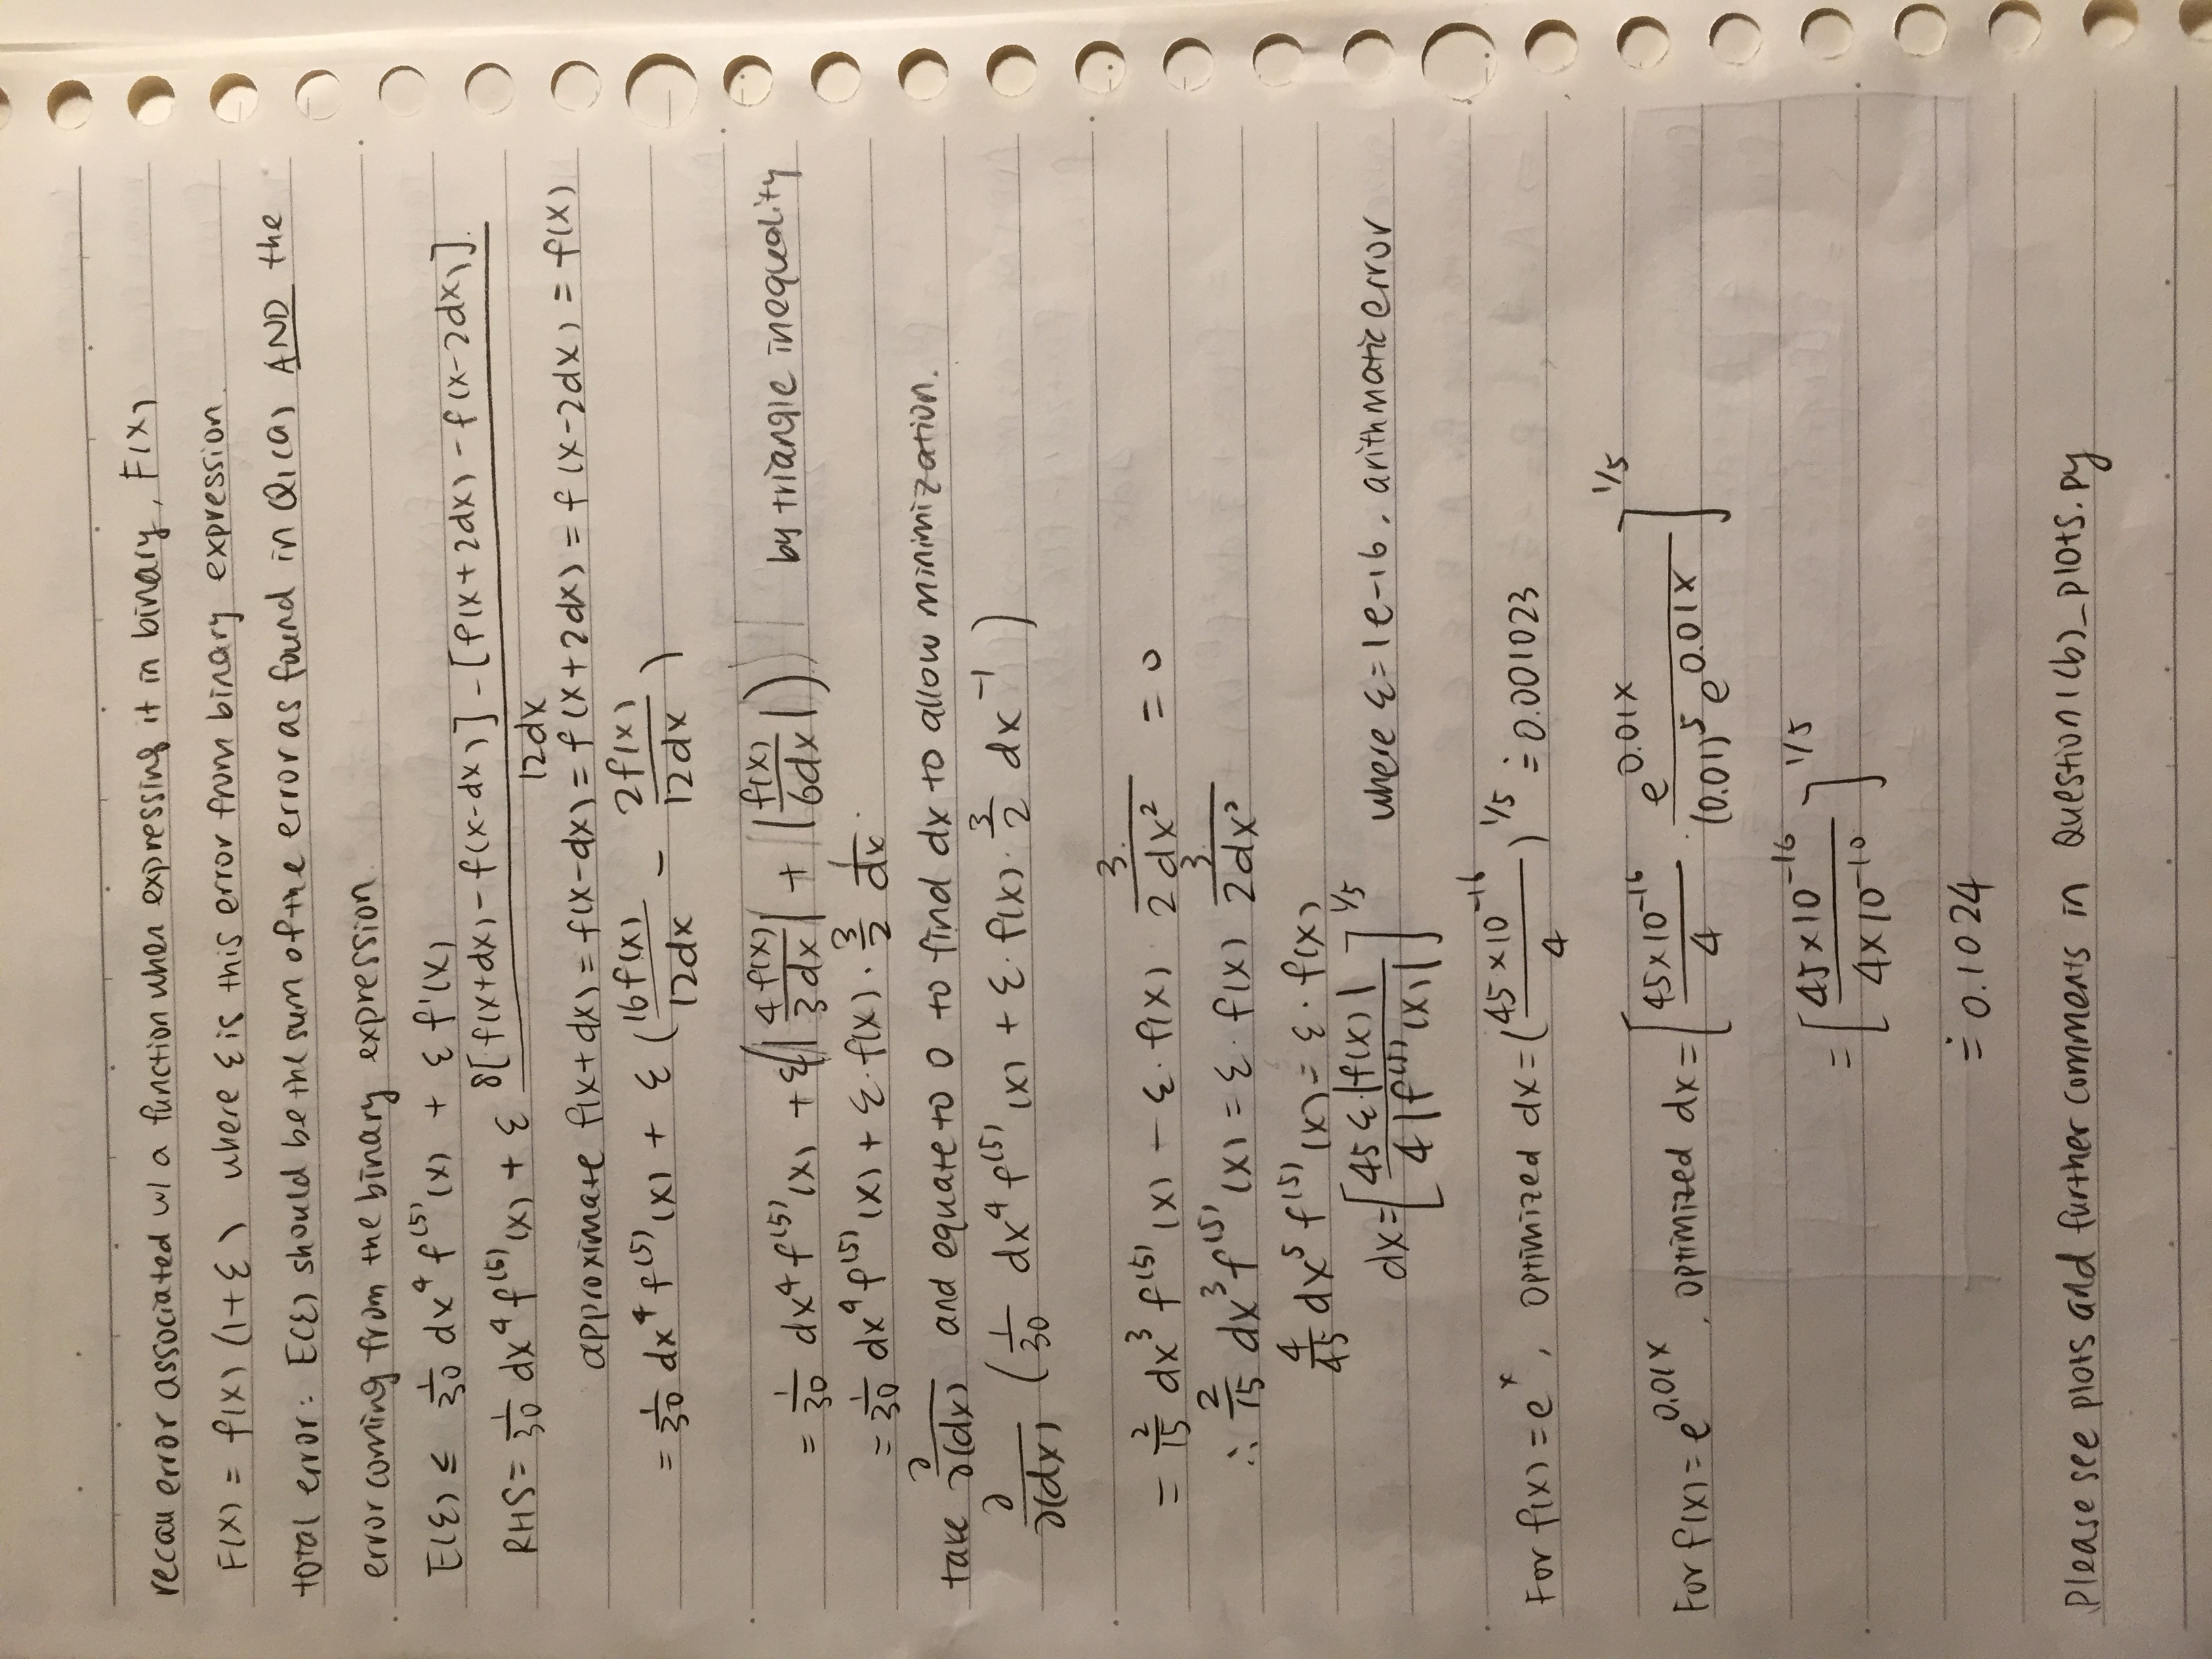 recall error associated w/ a function when expressing it in binary, F(x)
F(x) = f(x) (1+ε) where ε is this error from binary expression.
total error: E(ε) should be the sum of the error as found in Q1(a) AND the
error coming from the binary expression.
E(ε) ≤ 1/30 dx⁴ f⁽⁵⁾(x) + ε f'(x)
RHS = 1/30 dx⁴ f⁽⁵⁾(x) + ε 8[f(x+dx) - f(x-dx)] - [f(x+2dx) - f(x-2dx)]. / 12dx
approximate f(x+dx) = f(x-dx) = f(x+2dx) = f(x-2dx) = f(x)
= 1/30 dx⁴ f⁽⁵⁾(x) + ε (16f(x)/12dx - 2f(x)/12dx)
= 1/30 dx⁴ f⁽⁵⁾(x) + ε(|4f(x)/3dx| + |f(x)/6dx|) by triangle inequality
= 1/30 dx⁴ f⁽⁵⁾(x) + ε · f(x) · 3/2 1/dx.
take ∂/∂(dx) and equate to 0 to find dx to allow minimization.
∂/∂(dx) (1/30 dx⁴ f⁽⁵⁾(x) + ε · f(x) · 3/2 dx⁻¹)
= 2/15 dx³ f⁽⁵⁾(x) - ε · f(x) · 3/2dx² = 0
∴ 2/15 dx³ f⁽⁵⁾(x) = ε · f(x) 3/2dx²
4/45 dx⁵ f⁽⁵⁾(x) = ε · f(x)
dx = [45 ε·|f(x)| / 4|f⁽⁵⁾(x)|]^1/5 where ε = 1e-16, arithmatic error
For f(x) = eˣ, optimized dx = (45×10⁻¹⁶/4)^1/5 ≐ 0.001023
For f(x) = e^0.01x, optimized dx = [45×10⁻¹⁶/4 · e^0.01x/(0.01)⁵ e^0.01x]^1/5
= [45×10⁻¹⁶/4×10⁻¹⁰]^1/5
≐ 0.1024
Please see plots and further comments in Question1(b)_plots.py